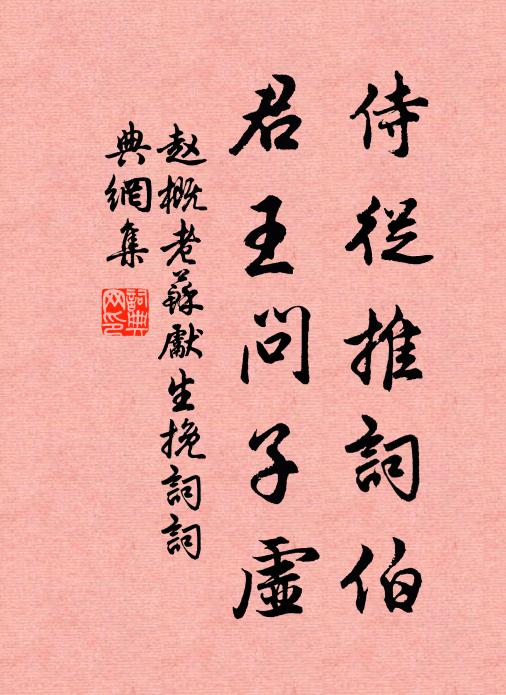 侍從推詞伯
君王問子虛
赵概老蘇獻生挽詞詞
典網集
詞典
网印